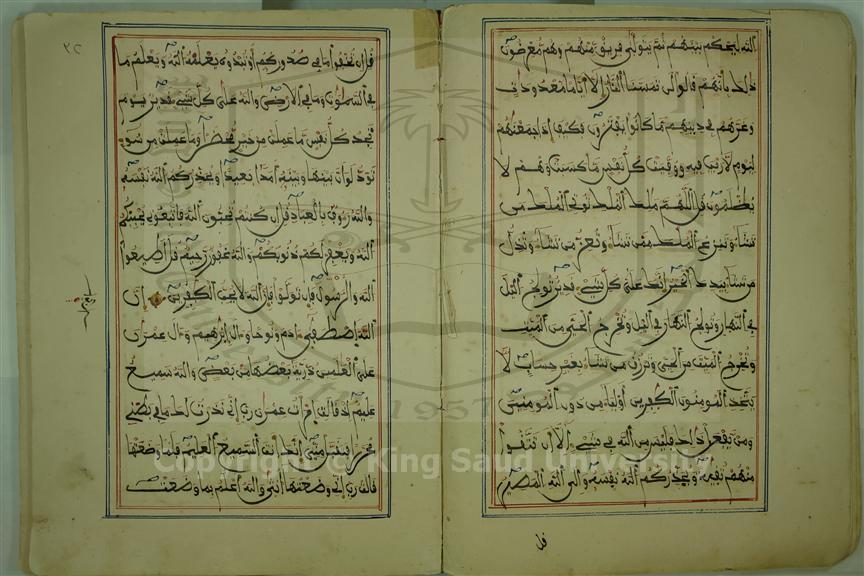 الله ليحكم بينهم ثم يتولى فريق منهم وهم معرضون
ذلك بأنهم قالوا لن تمسنا النار إلا أياما معدودات
وغرهم في دينهم ما كانوا يفترون فكيف إذا جمعنهم
ليوم لا ريب فيه ووفيت كل نفس ما كسبت وهم لا
يظلمون قل اللهم ملك الملك توتي الملك من
تشاء وتنزع الملك ممن تشاء وتعز من تشاء وتذل
من تشاء بيدك الخير إنك على كل شيء قدير تولج اليل
في النهار وتولج النهار في اليل وتخرج الحي من الميت
وتخرج الميت من الحي وترزق من تشاء بغير حساب لا
يتخذ المومنون الكفرين أولياء من دون المومنين
ومن يفعل ذلك فليس من الله في شيء إلا أن تتقوا
منهم تقية ويحذركم الله نفسه وإلى الله المصير
قل
٣٢
قل إن تخفوا ما في صدوركم أو تبدوه يعلمه الله ويعلم ما
في السموت وما في الأرض والله على كل شيء قدير يوم
تجد كل نفس ما عملت من خير محضرا وما عملت من سوء
تود لو أن بينها وبينه أمدا بعيدا ويحذركم الله نفسه
والله رءوف بالعباد قل إن كنتم تحبون الله فاتبعوني يحببكم
الله ويغفر لكم ذنوبكم والله غفور رحيم قل أطيعوا
الله والرسول فإن تولوا فإن الله لا يحب الكفرين إن
الله اصطفى ءادم ونوحا وءال إبرهيم وءال عمرن
على العلمين ذرية بعضها من بعض والله سميع
عليم إذ قالت امرأت عمرن رب إني نذرت لك ما في بطني
محررا فتقبل مني إنك أنت السميع العليم فلما وضعتها
قالت رب إني وضعتها أنثى والله أعلم بما وضعت
Copyright © King Saud University
1957